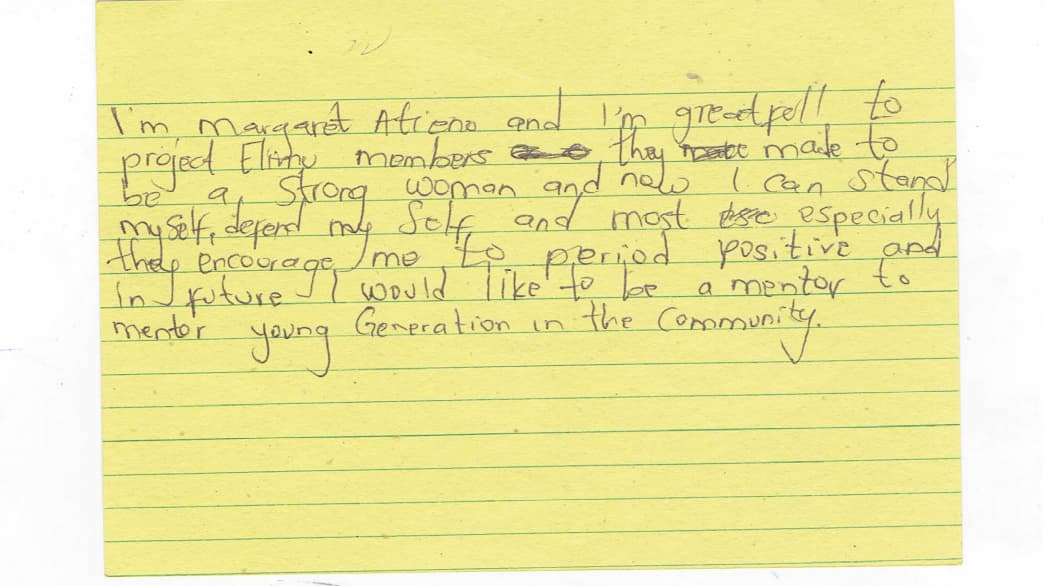 I'm margaret Atieno and I'm greatfull to
project Elimu members they made to
be a strong woman and now I can stand
myself, defend my self and most especially
they encourage me to period positive and
in future I would like to be a mentor to
mentor young Generation in the community.